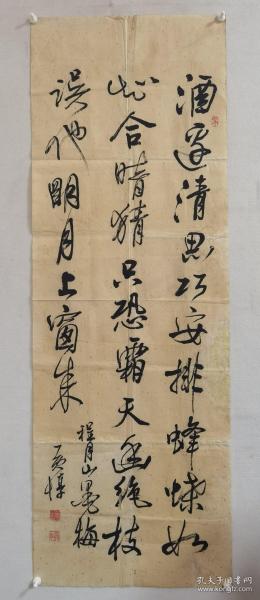 酒边清思巧安排蜂蝶如
此合暗猜只恐霜天画绝枝
误他明月上窗来
程月山墨梅
黄惇
孔夫子旧书网